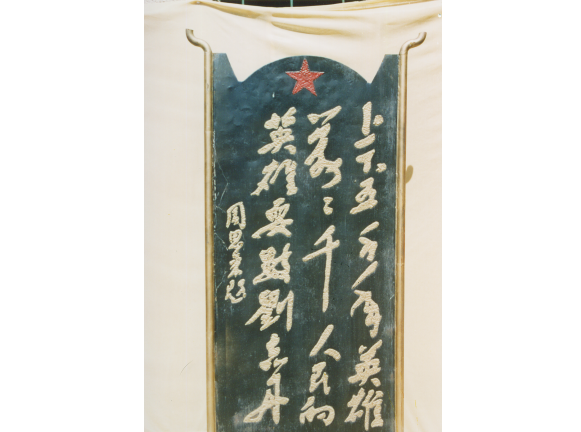 上下五千年英雄
萬〻千人民的
英雄要數劉志丹
周恩来题